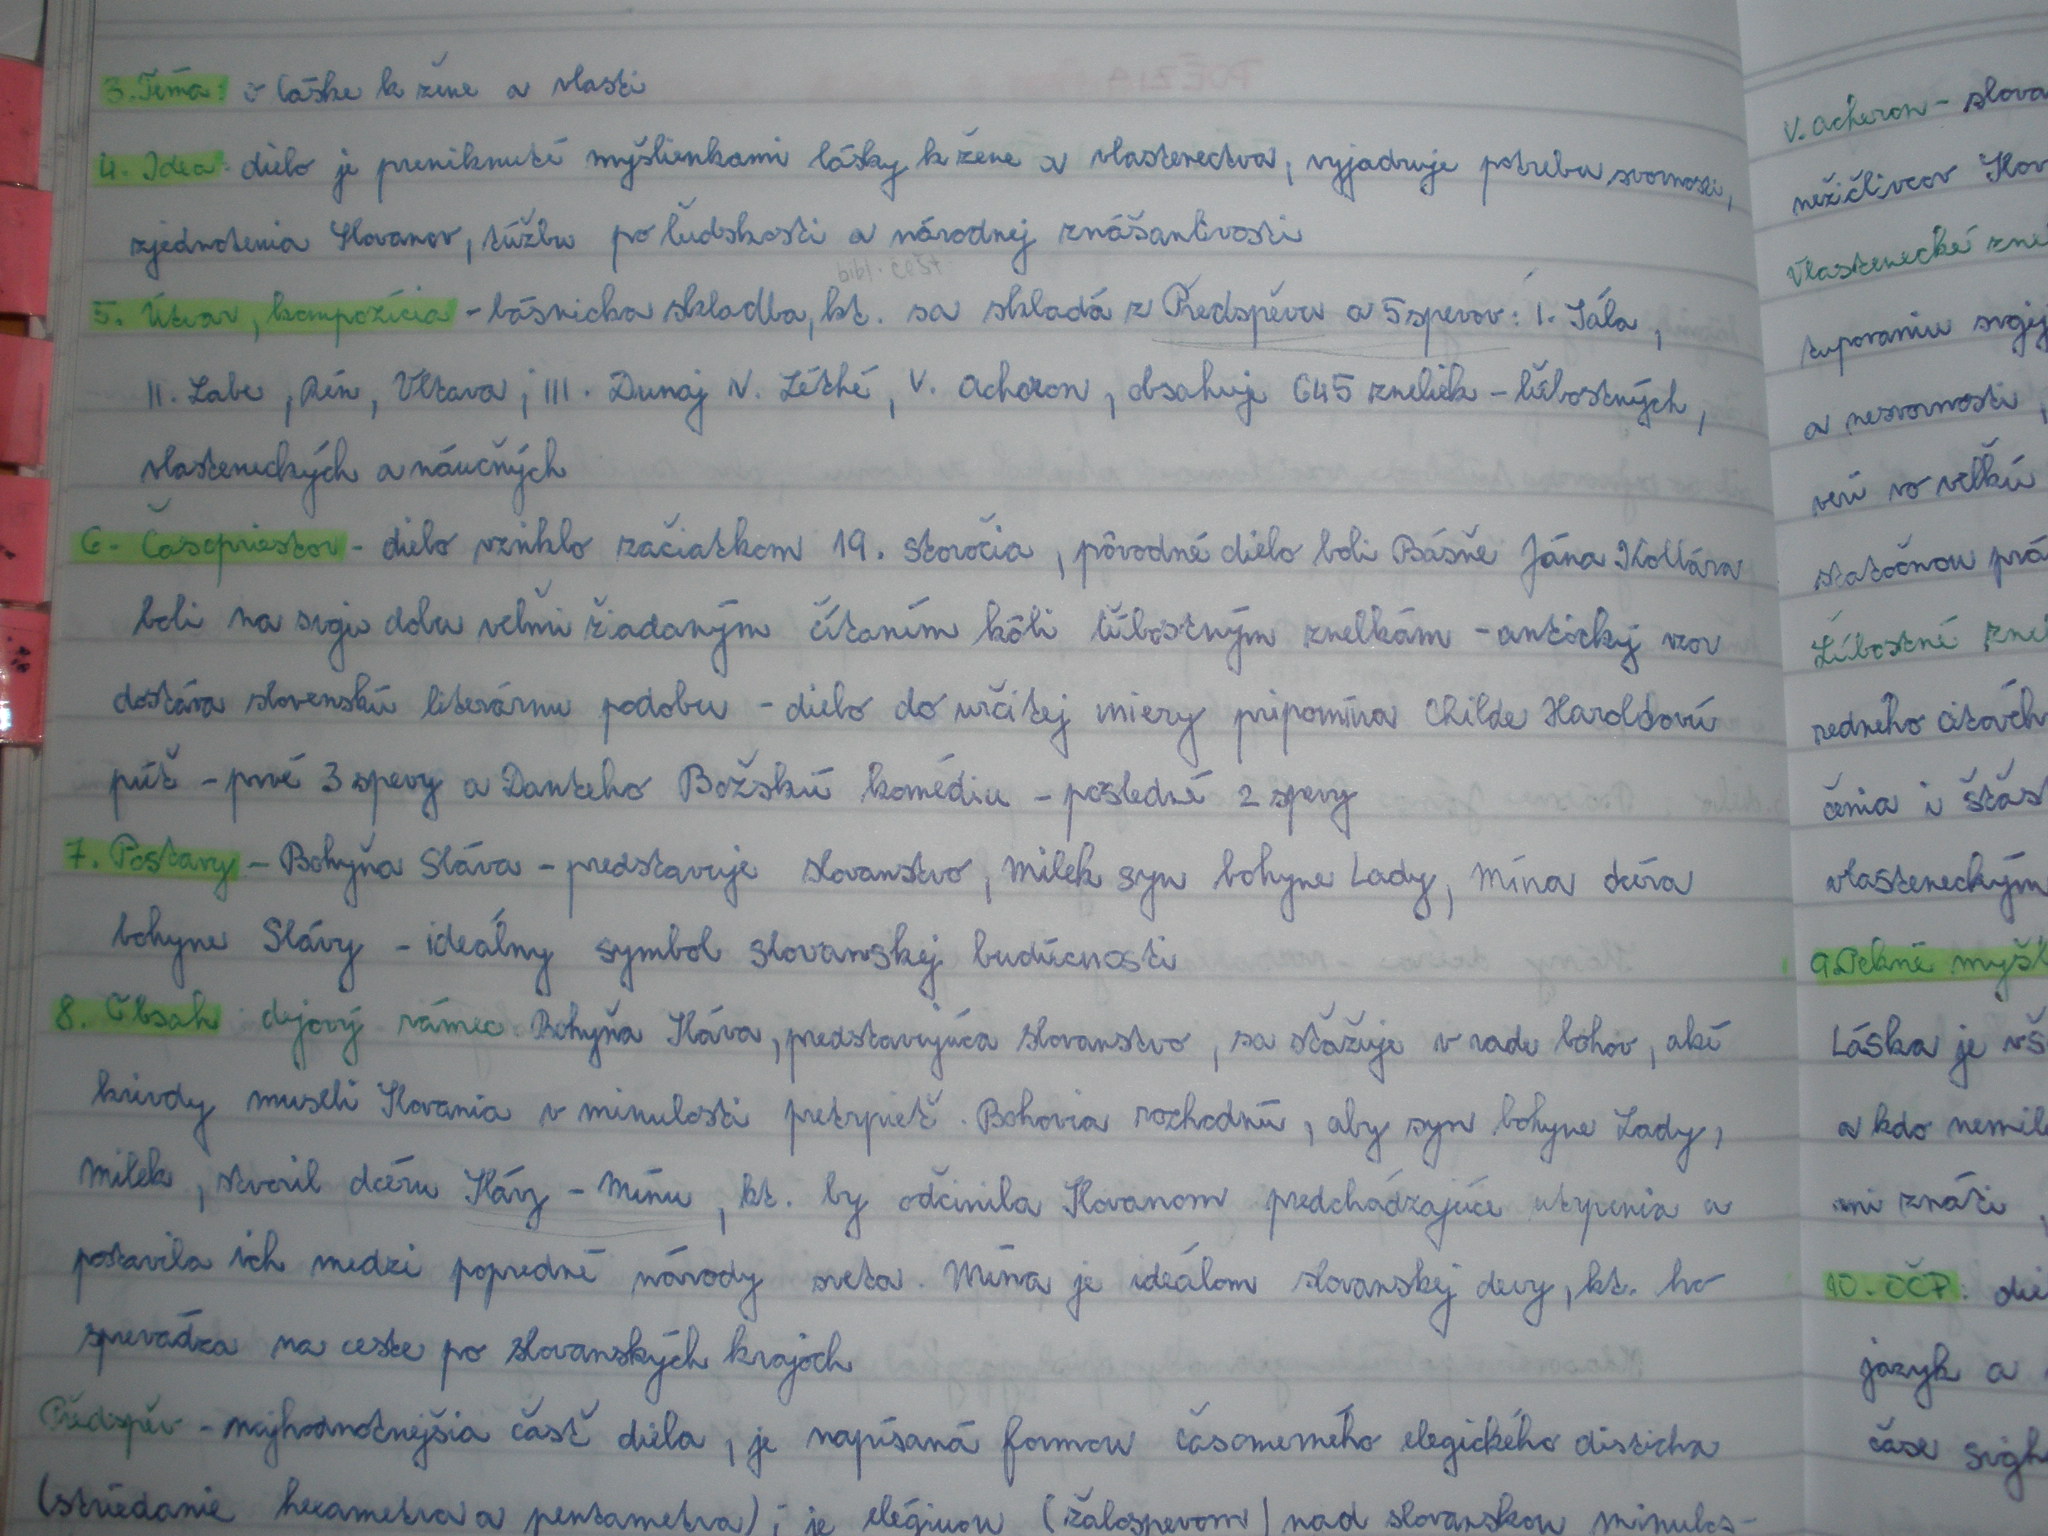 3. Téma: o láske k žene a vlasti
4. Idea: dielo je preniknuté myšlienkami lásky k žene a vlastenectva, vyjadruje potrebu svornosti,
zjednotenia Slovanov, túžbu po ľudskosti a národnej znášanlivosti
5. Útvar, kompozícia - básnicka skladba, kt. sa skladá z Předspěvu a 5 spevov: I. Sála,
II. Labe, Rén, Vltava, III. Dunaj IV. Léthé, V. Acheron, obsahuje 645 zneliek - ľúbostných,
vlasteneckých a náučných
6. Časopriestor - dielo vzniklo začiatkom 19. storočia, pôvodné dielo boli Básňe Jána Kollára
boli na svoju dobu veľmi žiadaným čítaním kôli ľúbostným znelkám - antický vzor
dostáva slovenskú literárnu podobu - dielo do určitej miery pripomína Childe Haroldovú
púť - prvé 3 spevy a Danteho Božskú komédiu - posledné 2 spevy
7. Postavy - Bohyňa Sláva - predstavuje slovanstvo, Milek syn bohyne Lady, Mína dcéra
bohyne Slávy - ideálny symbol slovanskej budúcnosti
8. Obsah: dejový rámec Bohyňa Sláva, predstavujúca slovanstvo, sa sťažuje v rade bohov, aké
krivdy museli Slovania v minulosti pretrpieť. Bohovia rozhodnú, aby syn bohyne Lady,
Milek, stvoril dcéru Slávy - Mínu, kt. by odčinila Slovanom predchádzajúce utrpenia a
postavila ich medzi popredné národy sveta. Mína je ideálom slovanskej devy, kt. ho
sprevádza na ceste po slovanských krajoch
Předspěv - najhodnotnejšia časť diela, je napísaná formou časomerného elegického disticha
(striedanie hexametra a pentametra), je elégiou (žalospevom) nad slovanskou minulos-
V. Acheron - slova
nežičlivcov Slov
Vlastenecké zne
tupovaniu svojej
a nesvornosti,
verí vo veľkú
statočnou prá
Ľúbostné zne
redného citovéh
čenia i šťas
vlasteneckým
9. Pekné myšl
Láska je vš
a kdo nemil
mi znáti,
10. OČP: die
jazyk a
čase svojh